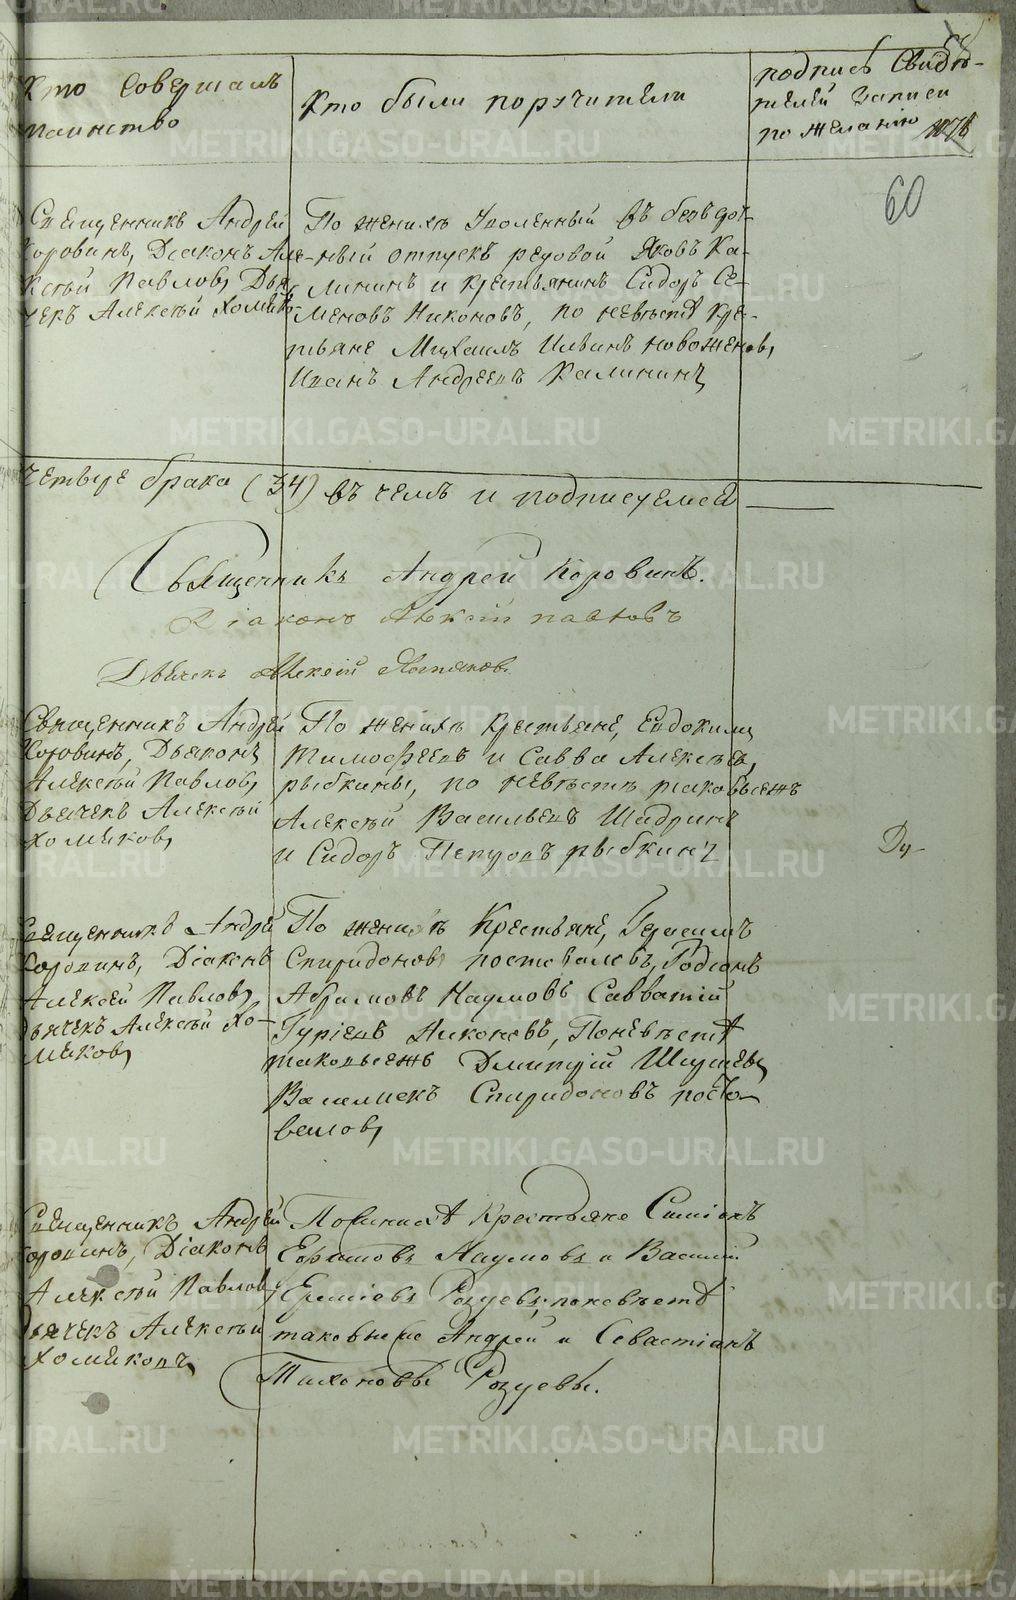 Кто совершалъ
таинство
Кто были поручители
подпись Свидѣ-
телей записи
по желанію
60
Священникъ Андрей
Коровинъ, Діаконъ Але-
ксѣй Павловъ, Дья-
чекъ Алексѣй Хомяковъ
По женихѣ Уволенный въ безсроч-
ный отпускъ рядовой Яковъ Ка-
лининъ и крестьянинъ Сидоръ Се-
меновъ Никоновъ, по невѣстѣ Кре-
стьяне Михаилъ Ильинъ Новоженовъ,
Иванъ Андреевъ Калининъ
четыре брака (34) въ чемъ и подписуемся
Священникъ Андрей Коровинъ.
Діаконъ Алексѣй Павловъ
Дьячекъ Алексѣй Хомяковъ
Священникъ Андрей
Коровинъ, Дьяконъ
Алексѣй Павловъ,
Дьячекъ Алексѣй
Хомяковъ
По женихѣ крестьяне, Евдокимъ
Тимофеевъ и Савва Алексѣевъ
рыбкины, по невѣстѣ таковыежъ
Алексѣй Васильевъ Шадринъ
и Сидоръ Петровъ рыбкинъ
Ду-
Священникъ Андрей
Коровинъ, Діаконъ
Алексей Павловъ,
дьячекъ Алексѣй Хо-
мяковъ
По женихѣ Крестьяне, Герасимъ
Спиридоновъ постоваловъ, Родіонъ
Абрамовъ Наумовъ Савватій
Гуріевъ Никоновъ, По невѣстѣ
таковыежъ Дмитрій
Спиридоновъ посто-
валовъ
Священникъ Андрей
Коровинъ, Діаконъ
Алексѣй Павловъ,
Дьячекъ Алексѣй
Хомяковъ
По женихѣ Крестьяне
Ефимовъ Наумовъ и Василій
Розуевъ, по невѣстѣ
таковые же Андрей и Севастіанъ
Тихоновы Розуевы.
METRIKI.GASO-URAL.RU